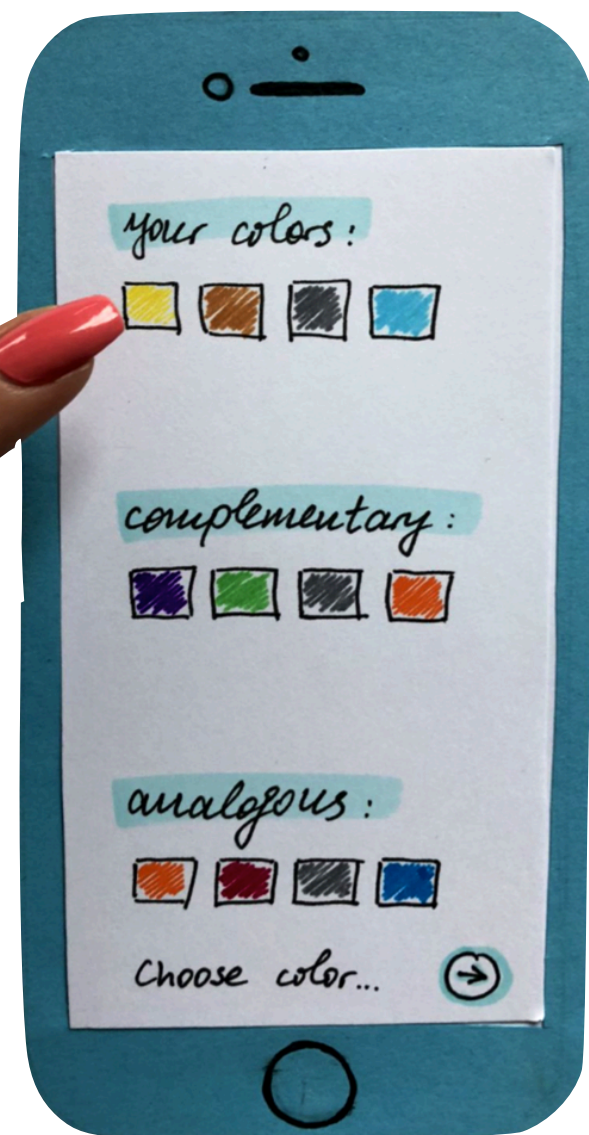 your colors:
complementary:
analogous:
Choose color...